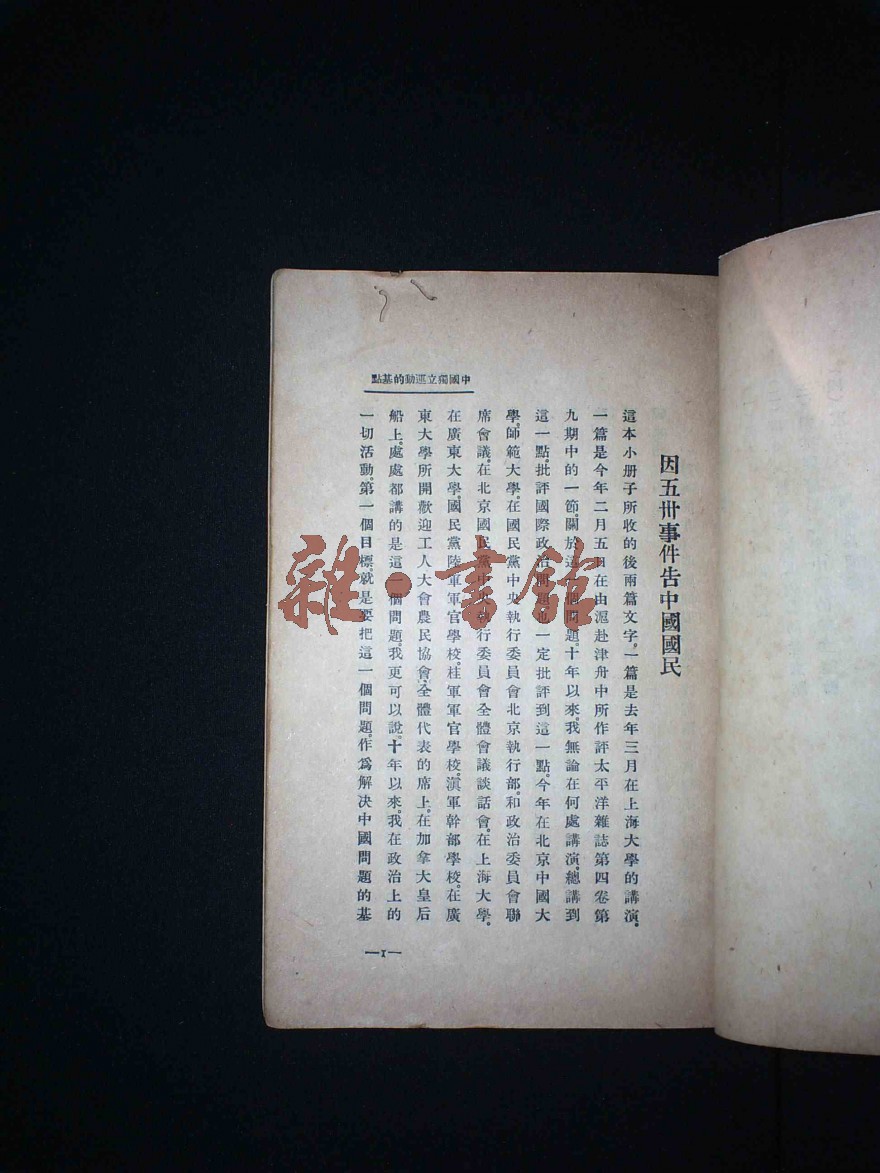 中國獨立運動的基點
因五卅事件告中國國民
這本小册子所收的後兩篇文字。一篇是去年三月在上海大學的講演。
一篇是今年二月五日在由滬赴津舟中所作評太平洋雜誌第四卷第
九期中的一節。關於這一個問題。十年以來。我無論在何處講演。總講到
這一點。批評國際政治問題也一定批評到這一點。今年在北京中國大
學。師範大學。在國民黨中央執行委員會北京執行部。和政治委員會聯
席會議。在北京國民黨中央執行委員會全體會議談話會。在上海大學。
在廣東大學。國民黨陸軍軍官學校。桂軍軍官學校。滇軍幹部學校。在廣
東大學所開歡迎工人大會農民協會。全體代表的席上。在加拿大皇后
船上。處處都講的是這一個問題。我更可以說。十年以來。我在政治上的
一切活動。第一個目標。就是要把這一個問題。作爲解决中國問題的基
—1—
雜·書館